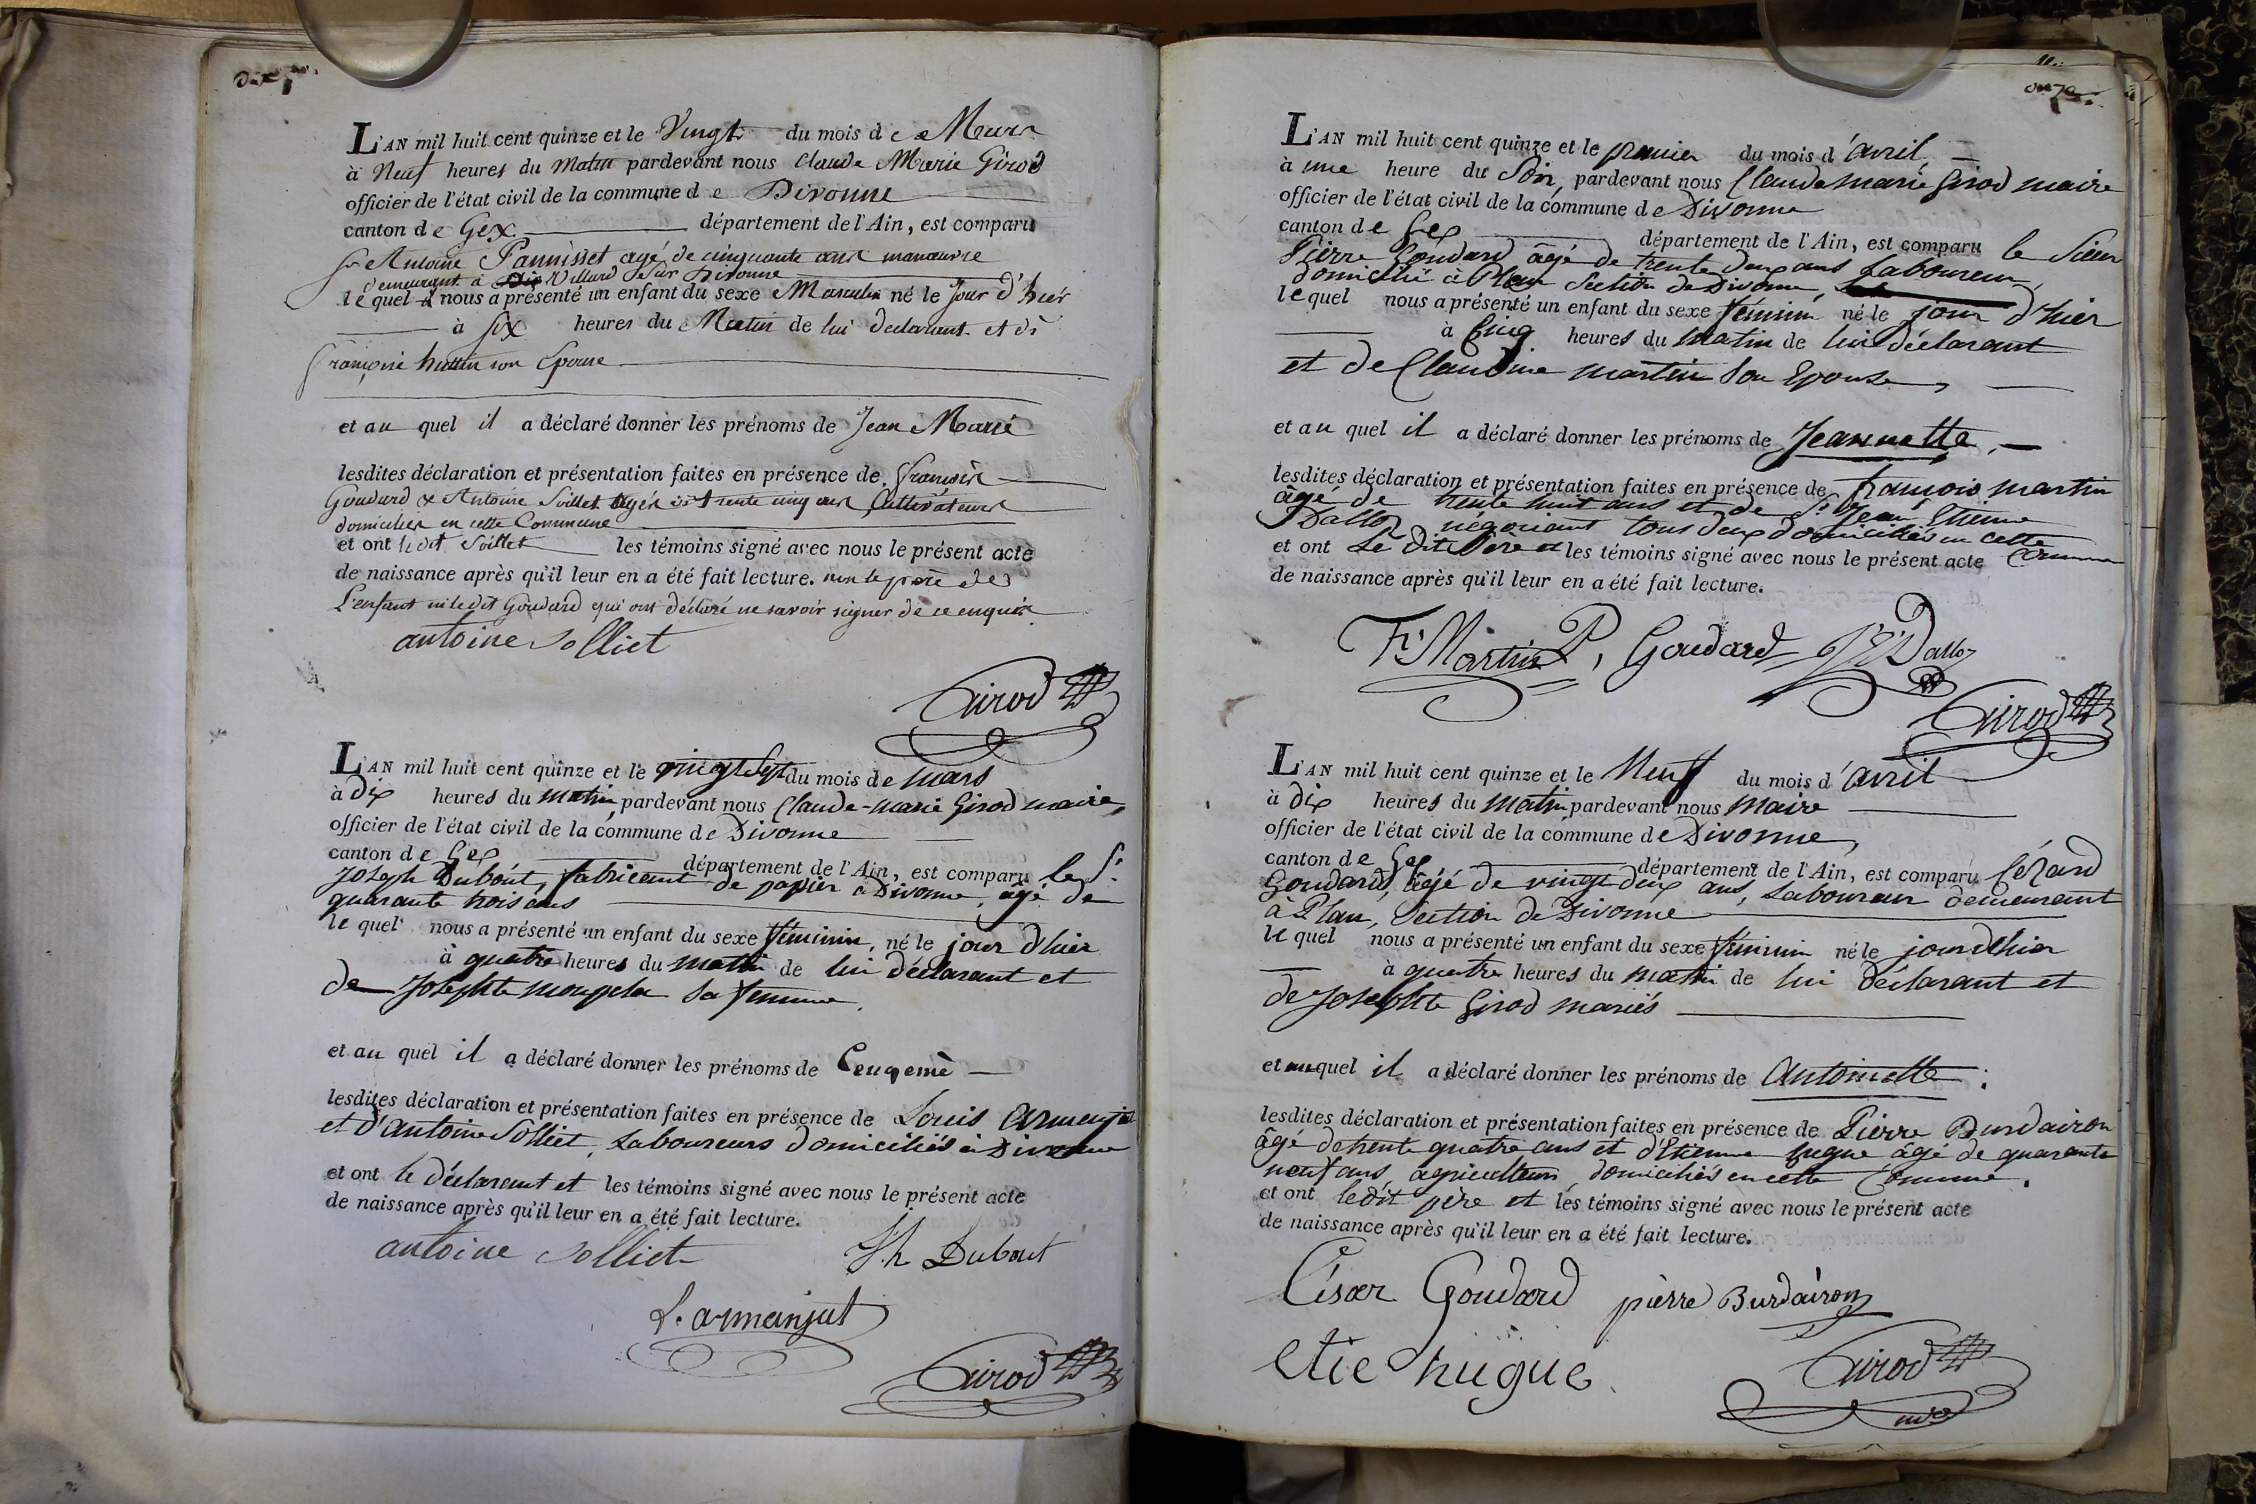 L'AN mil huit cent quinze et le Vingt du mois de Mars
à Neuf heures du Matin pardevant nous Claude Marie Girod
officier de l'état civil de la commune de Divonne
canton de Gex département de l'Ain, est comparu
Sr Antoine Pannisset agé de cinquante ans manoeuvre
demeurant à Villard sur Divonne
le quel nous a présenté un enfant du sexe Masculin né le Jour d'hier
à Six heures du Matin de lui declarant et de
françoise huttin son Epouse
et au quel il a déclaré donner les prénoms de Jean Marie
lesdites déclaration et présentation faites en présence de françois
Goudard & Antoine Solliet agés de trente cinq ans Cultivateurs
domiciliés en cette Commune
et ont ledit Solliet les témoins signé avec nous le présent acte
de naissance après qu'il leur en a été fait lecture. non le père de
L'enfant ni ledit Goudard qui ont déclaré ne savoir signer de ce enquis.
antoine solliet
Girod
L'AN mil huit cent quinze et le vingt Sept du mois de mars
à dix heures du matin, pardevant nous Claude-marie Girod maire,
officier de l'état civil de la commune de Divonne
canton de Gex département de l'Ain, est comparu le Sr
Joseph Dubout, fabricant de papier à Divonne, âgé de
quarante trois ans
le quel nous a présenté un enfant du sexe féminin, né le jour d'hier
à quatre heures du matin de lui déclarant et
de Josephte sa femme.
et au quel il a déclaré donner les prénoms de
lesdites déclaration et présentation faites en présence de Louis Armenjat
et d'antoine Solliet, Laboureurs domiciliés à Divonne
et ont le déclarant et les témoins signé avec nous le présent acte
de naissance après qu'il leur en a été fait lecture.
antoine solliet Jh Dubout
L. armanjat
Girod
11.
onze
L'AN mil huit cent quinze et le premier du mois d'avril,
à une heure du Soir, pardevant nous Claude marie Girod maire
officier de l'état civil de la commune de Divonne
canton de Gex département de l'Ain, est comparu le Sieur
Pierre Goudard âgé de trente deux ans Laboureur
domicilié à Plan Section de Divonne,
le quel nous a présenté un enfant du sexe féminin né le jour d'hier
à Cinq heures du matin de lui déclarant
et de Claudine martin Son Epouse,
et au quel il a déclaré donner les prénoms de Jeannette,
lesdites déclaration et présentation faites en présence de françois martin
âgé de trente huit ans et de Sr Jean Etienne
Dalloz négociant tous deux domiciliés en cette
et ont Le dit Père et les témoins signé avec nous le présent acte Commune
de naissance après qu'il leur en a été fait lecture.
Fs Martin P. Goudard Dalloz
Girod
L'AN mil huit cent quinze et le Neuf du mois d'avril
à dix heures du matin pardevant nous maire
officier de l'état civil de la commune de Divonne,
canton de Gex département de l'Ain, est comparu Cézard
Goudard, âgé de vingt deux ans, Laboureur demeurant
à Plan, Section de Divonne
le quel nous a présenté un enfant du sexe féminin né le jour d'hier
à quatre heures du matin de lui déclarant et
de Josephte Girod mariés
et au quel il a déclaré donner les prénoms de Antoinette.
lesdites déclaration et présentation faites en présence de Pierre Burdairon
âgé de trente quatre ans et d'Etienne hugue âgé de quarante
neuf ans, agriculteurs domiciliés en cette Commune.
et ont ledit père et les témoins signé avec nous le présent acte
de naissance après qu'il leur en a été fait lecture.
César Goudard pierre Burdairon
etie hugue
Girod